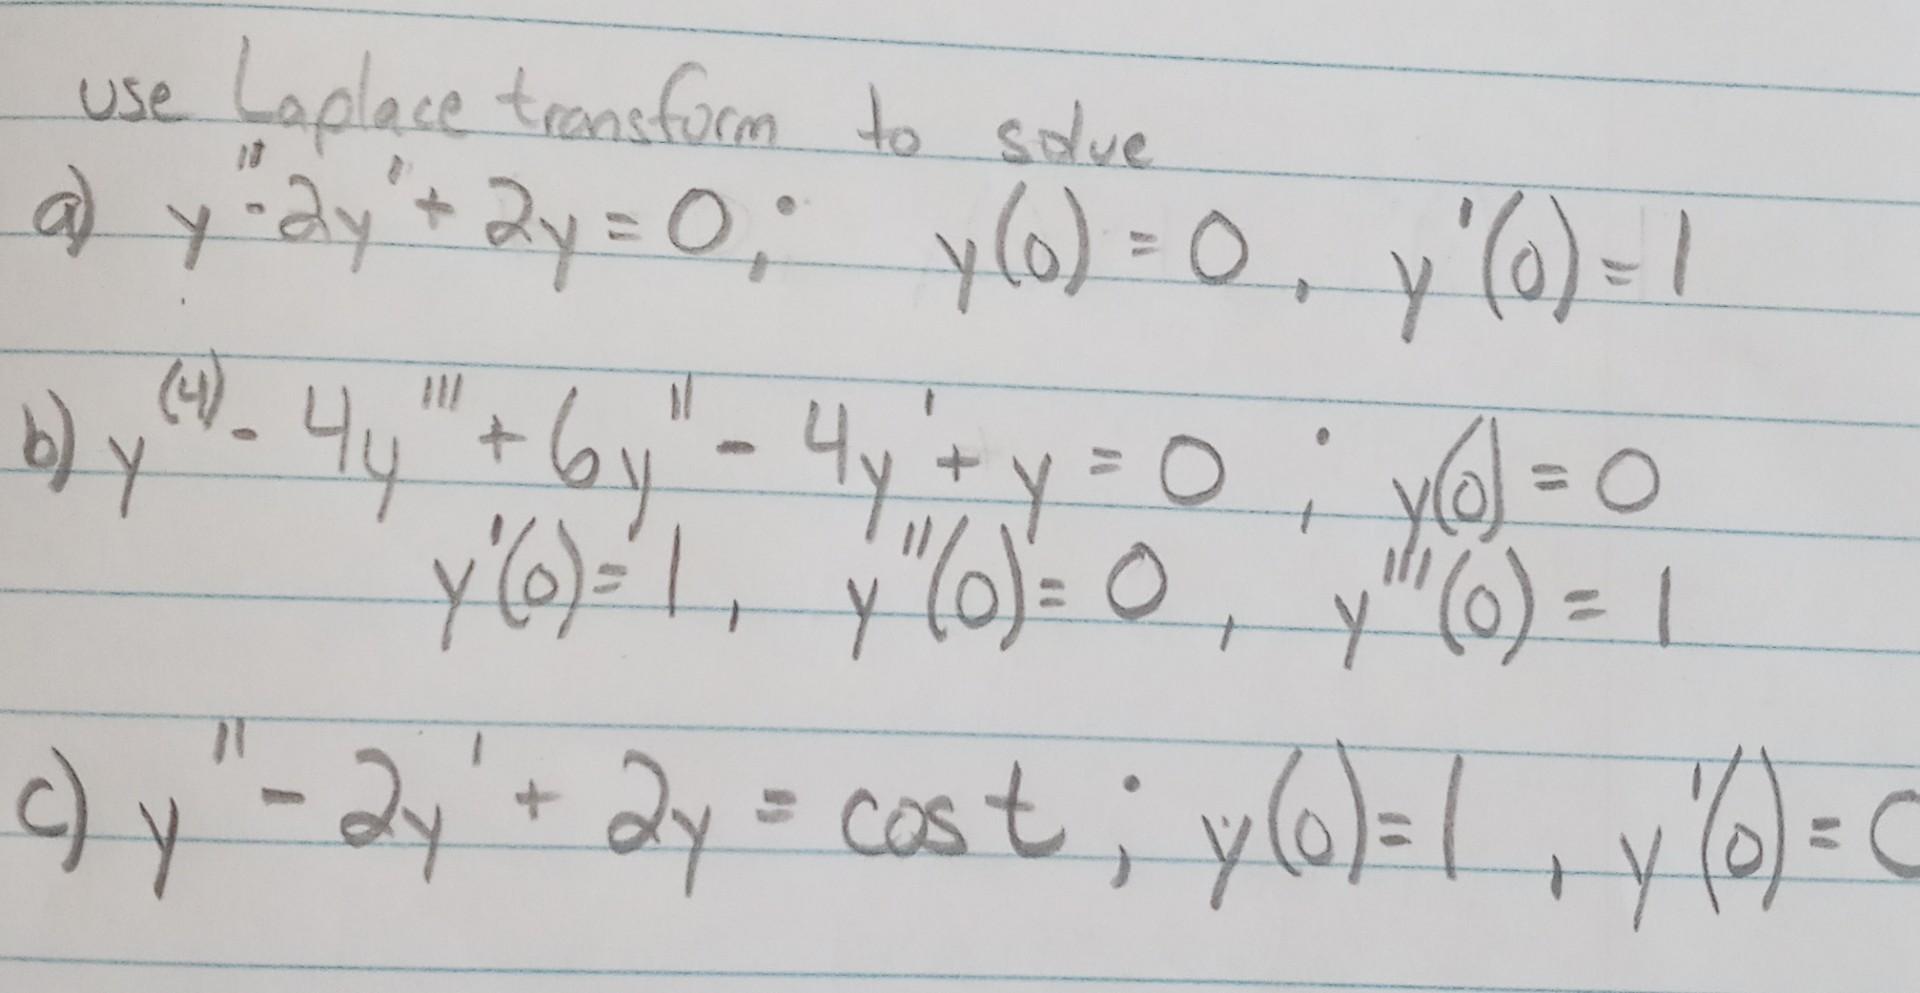 use Laplace transform to solve
a) y'' - 2y' + 2y = 0 ; y(0) = 0 , y'(0) = 1
b) y^(4) - 4y''' + 6y'' - 4y' + y = 0 ; y(0) = 0
y'(0) = 1 , y''(0) = 0 , y'''(0) = 1
c) y'' - 2y' + 2y = cos t ; y(0) = 1 , y'(0) =